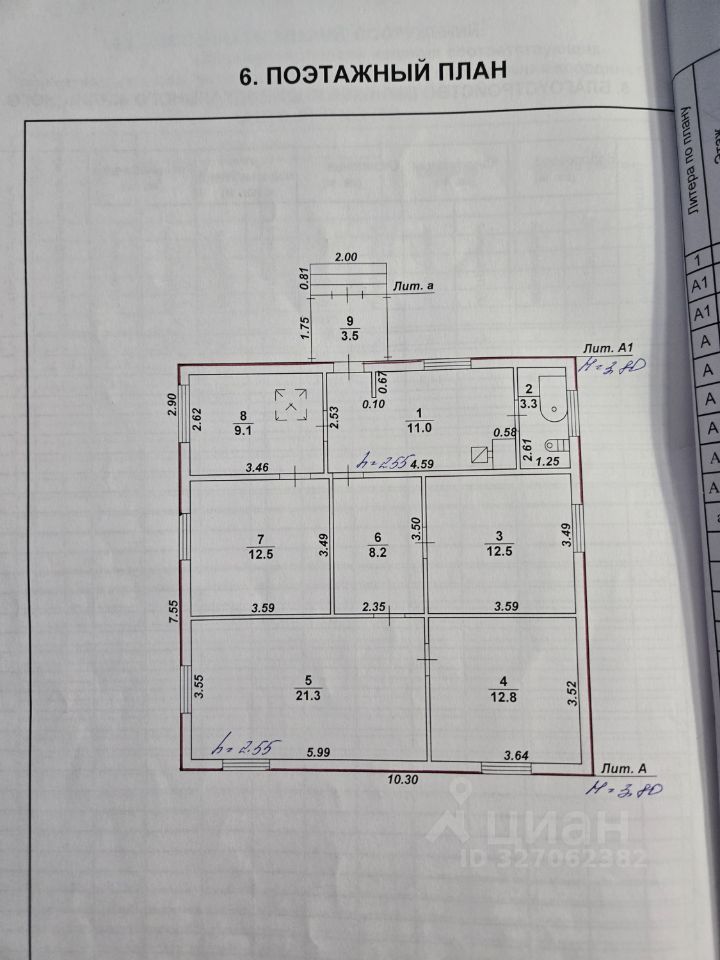 6. ПОЭТАЖНЫЙ ПЛАН
Литера по плану
Этаж
1
А1
А1
А
А
А
А
А
А
а
2.00
0.81
Лит. а
1.75
9
3.5
Лит. А1
H=3,80
2.90
2.62
8
9.1
3.46
2.53
0.10
0.67
1
11.0
0.58
h=2.55
4.59
2
3.3
2.61
1.25
7
12.5
3.49
3.59
6
8.2
3.50
2.35
3
12.5
3.49
3.59
7.55
3.55
5
21.3
h=2.55
5.99
4
12.8
3.52
3.64
10.30
Лит. А
H=3,80
циан
ID 327062382